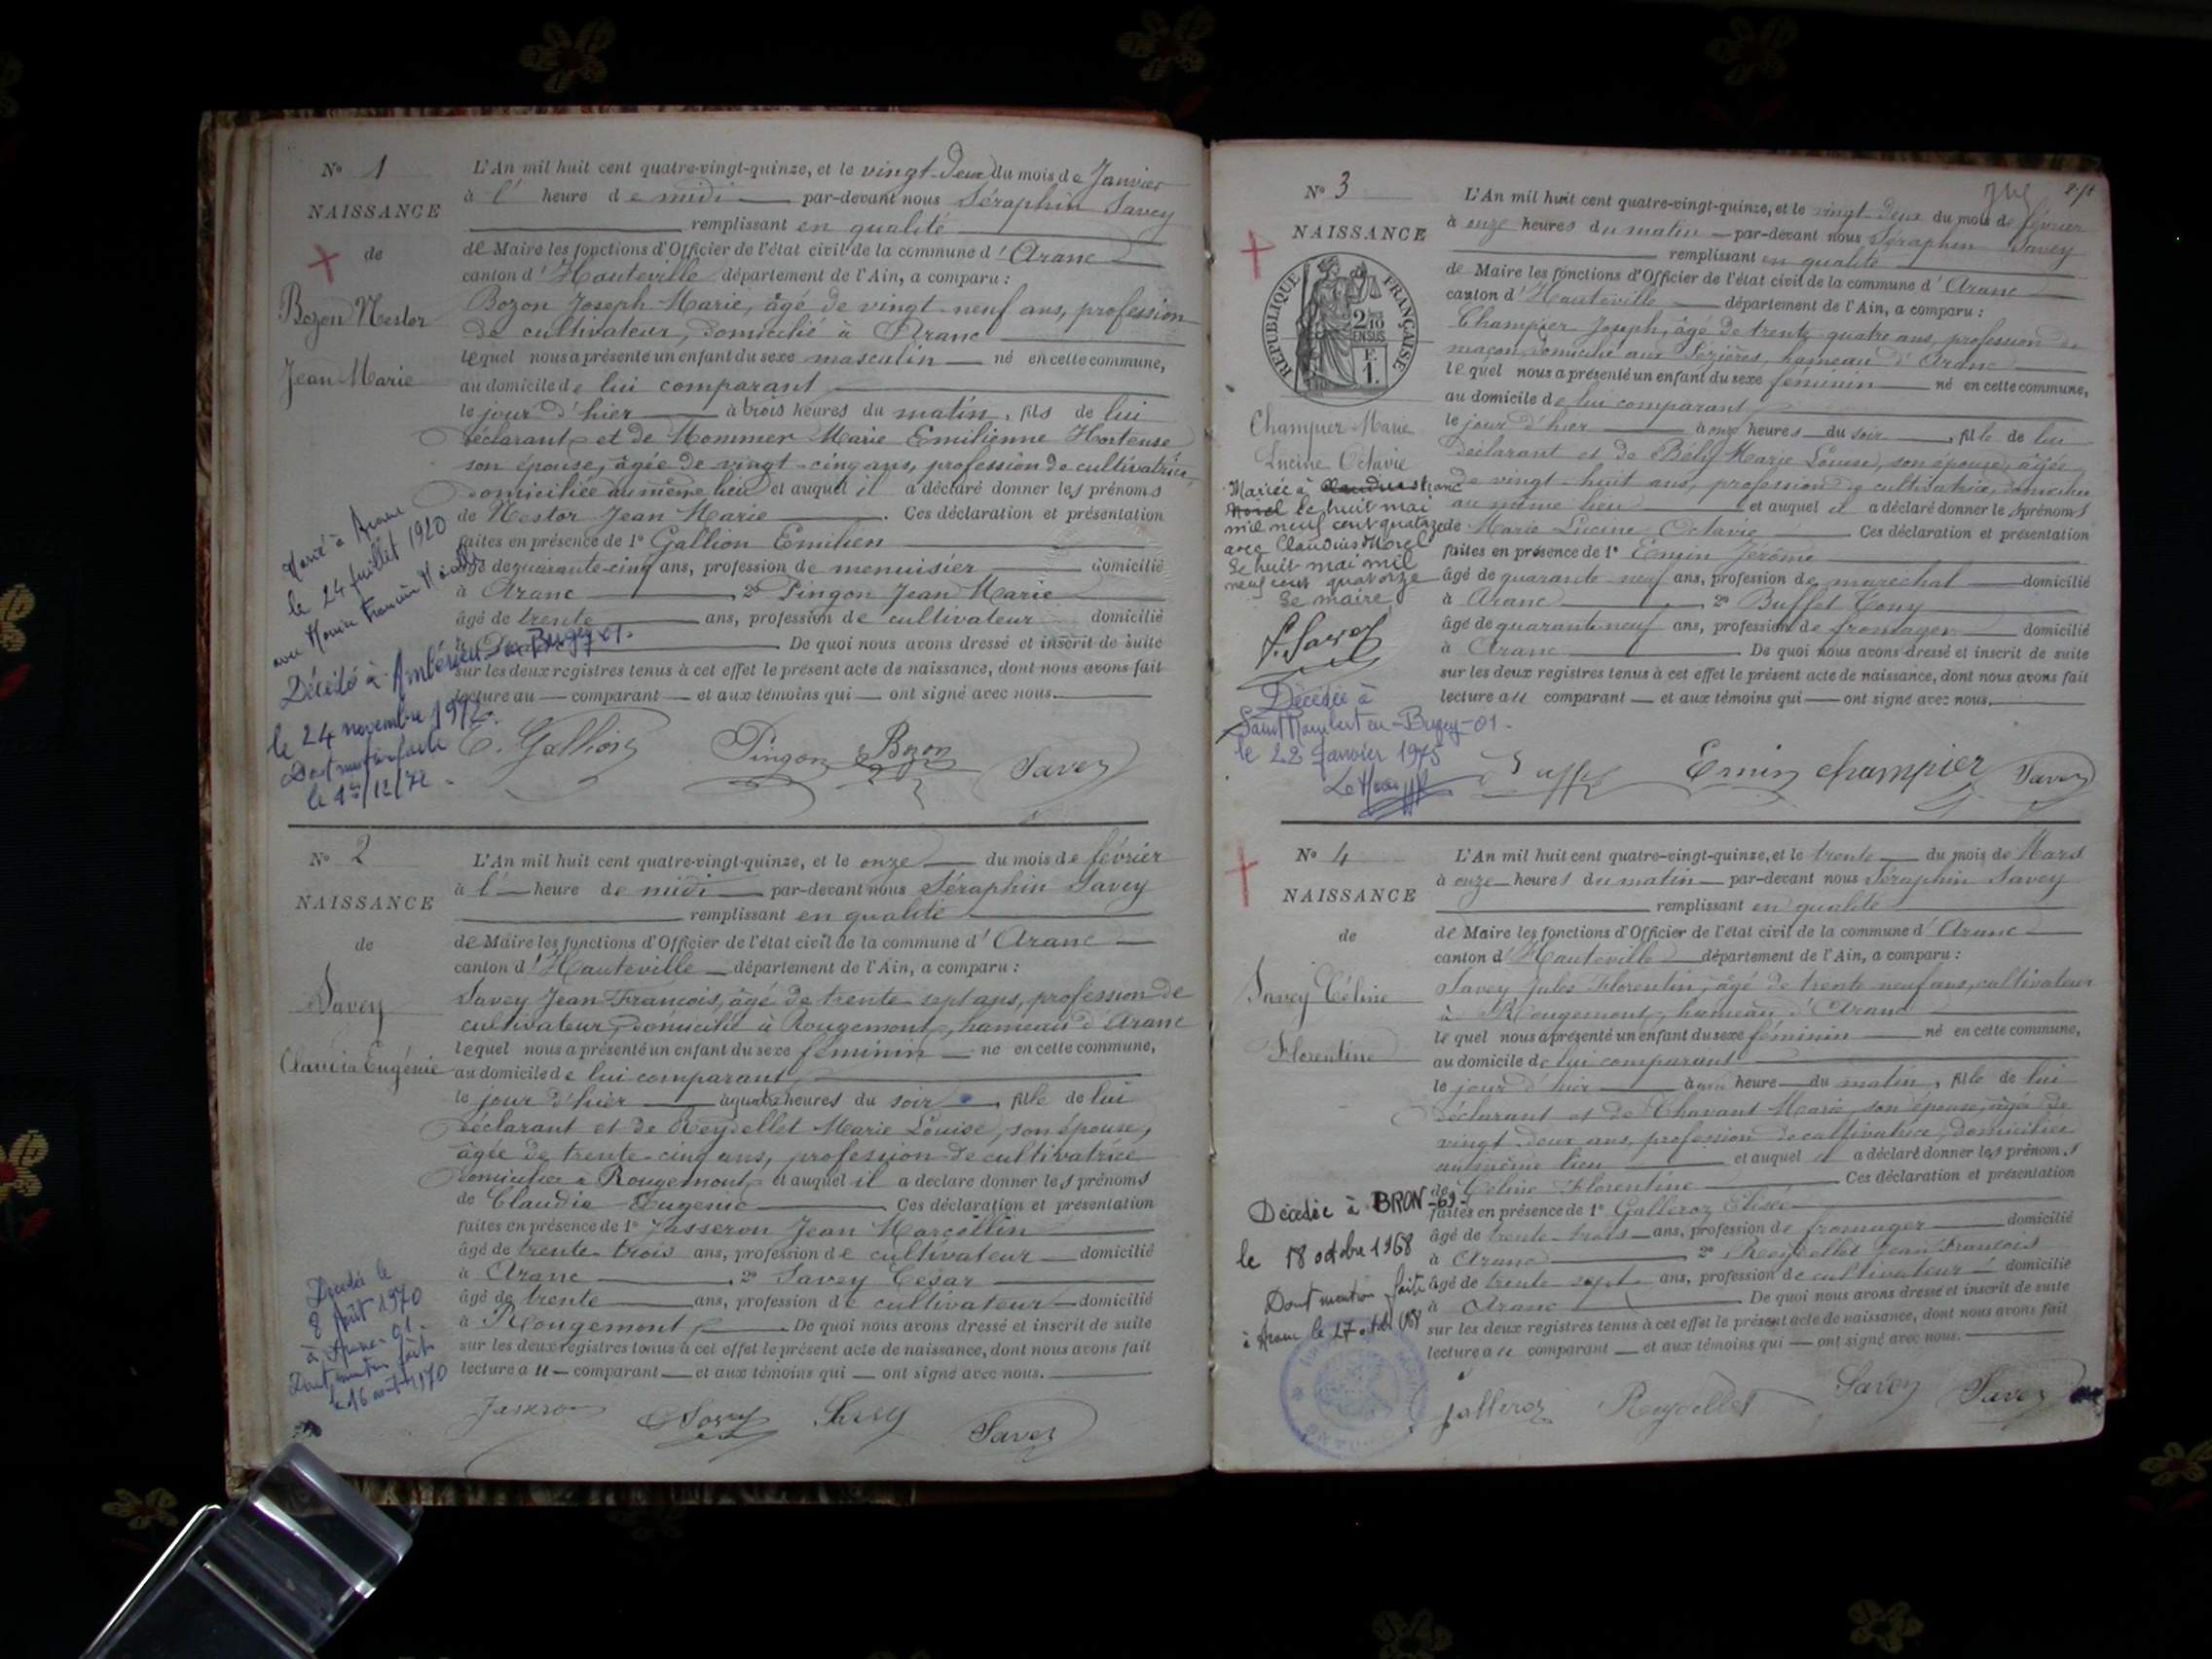 N° 1
NAISSANCE
de
Bozon Nestor
Jean Marie
L'An mil huit cent quatre-vingt-quinze, et le vingt-deux du mois de Janvier
à l' heure de midi par-devant nous Séraphin Savey
remplissant en qualité
de Maire les fonctions d'Officier de l'état civil de la commune d'Aranc
canton d'Hauteville département de l'Ain, a comparu :
Bozon Joseph Marie, âgé de vingt-neuf ans, profession
de cultivateur, domicilié à Aranc
lequel nous a présenté un enfant du sexe masculin né en cette commune,
au domicile de lui comparant
le jour d'hier à trois heures du matin, fils de lui
déclarant et de Mommer Marie Emilienne Hortense
son épouse, âgée de vingt-cinq ans, profession de cultivatrice,
domiciliée au même lieu et auquel il a déclaré donner les prénoms
de Nestor Jean Marie. Ces déclaration et présentation
faites en présence de 1° Gallion Emilien
âgé de quarante-cinq ans, profession de menuisier domicilié
à Aranc, 2° Pingon Jean Marie
âgé de trente ans, profession de cultivateur domicilié
à De quoi nous avons dressé et inscrit de suite
sur les deux registres tenus à cet effet le présent acte de naissance, dont nous avons fait
lecture au comparant et aux témoins qui ont signé avec nous.
Marié à Aranc
le 24 juillet 1920
avec
Décédé à Ambérieu en Bugey 01.
le 24 novembre 1972.
Dont mention faite
le 1er/12/72.
E. Gallion Pingon Bozon Savey
N° 2
NAISSANCE
de
Savey
Claudia Eugénie
L'An mil huit cent quatre-vingt-quinze, et le onze du mois de février
à l' heure de midi par-devant nous Séraphin Savey
remplissant en qualité
de Maire les fonctions d'Officier de l'état civil de la commune d'Aranc
canton d'Hauteville département de l'Ain, a comparu :
Savey Jean François, âgé de trente-sept ans, profession de
cultivateur, domicilié à Rougemont, hameau d'Aranc
lequel nous a présenté un enfant du sexe féminin né en cette commune,
au domicile de lui comparant
le jour d'hier à quatre heures du soir, fille de lui
déclarant et de Reydellet Marie Louise, son épouse,
âgée de trente-cinq ans, profession de cultivatrice
domiciliée à Rougemont, et auquel il a déclaré donner les prénoms
de Claudia Eugénie Ces déclaration et présentation
faites en présence de 1° Jasseron Jean Marcellin
âgé de trente-trois ans, profession de cultivateur domicilié
à Aranc, 2° Savey César
âgé de trente ans, profession de cultivateur domicilié
à Rougemont. De quoi nous avons dressé et inscrit de suite
sur les deux registres tenus à cet effet le présent acte de naissance, dont nous avons fait
lecture au comparant et aux témoins qui ont signé avec nous.
Décédée le
8 Août 1970
à Aranc-01-
Dont mention faite
le 16 août 1970
Jasseron Savey Savey Savey
N° 3
NAISSANCE
RÉPUBLIQUE FRANÇAISE
2/10 EN SUS
F.
1.
Champier Marie
Lucine Octavie
L'An mil huit cent quatre-vingt-quinze, et le vingt-deux du mois de février
à onze heures du matin par-devant nous Séraphin Savey
remplissant en qualité
de Maire les fonctions d'Officier de l'état civil de la commune d'Aranc
canton d'Hauteville département de l'Ain, a comparu :
Champier Joseph, âgé de trente-quatre ans, profession de
maçon, domicilié aux Pézières, hameau d'Aranc
lequel nous a présenté un enfant du sexe féminin né en cette commune,
au domicile de lui comparant
le jour d'hier à onze heures du soir, fille de lui
déclarant et de Marie Louise, son épouse, âgée
de vingt-huit ans, profession de cultivatrice, domiciliée
au même lieu et auquel il a déclaré donner les prénoms
de Marie Lucine Octavie Ces déclaration et présentation
faites en présence de 1° Emin Jérôme
âgé de quarante-neuf ans, profession de maréchal domicilié
à Aranc, 2° Buffet Tony
âgé de quarante-neuf ans, profession de fromager domicilié
à Aranc De quoi nous avons dressé et inscrit de suite
sur les deux registres tenus à cet effet le présent acte de naissance, dont nous avons fait
lecture au comparant et aux témoins qui ont signé avec nous.
Mariée à Claudius Aranc
Morel le huit mai
mil neuf cent quatorze
avec Claudius Morel
Le huit mai mil
neuf cent quatorze
Le maire
S. Savey
Décédée à
Saint Rambert en-Bugey-01-
le 22 Janvier 1975
Le Maire
Buffet Emin Champier Savey
N° 4
NAISSANCE
de
Savey Céline
Florentine
L'An mil huit cent quatre-vingt-quinze, et le trente du mois de Mars
à onze heures du matin par-devant nous Séraphin Savey
remplissant en qualité
de Maire les fonctions d'Officier de l'état civil de la commune d'Aranc
canton d'Hauteville département de l'Ain, a comparu :
Savey Jules Florentin, âgé de trente-neuf ans, cultivateur
à Rougemont, hameau d'Aranc
lequel nous a présenté un enfant du sexe féminin né en cette commune,
au domicile de lui comparant
le jour d'hier à une heure du matin, fille de lui
déclarant et de Chavant Marie, son épouse, âgée de
vingt-deux ans, profession de cultivatrice, domiciliée
au même lieu et auquel il a déclaré donner les prénoms
de Céline Florentine Ces déclaration et présentation
faites en présence de 1° Galleroz Elisée
âgé de trente-trois ans, profession de fromager domicilié
à Aranc 2° Reydellet Jean François
âgé de trente-sept ans, profession de cultivateur domicilié
à Aranc De quoi nous avons dressé et inscrit de suite
sur les deux registres tenus à cet effet le présent acte de naissance, dont nous avons fait
lecture au comparant et aux témoins qui ont signé avec nous.
Décédée à BRON-69-
le 18 octobre 1968
Dont mention faite
à Aranc le 27
Jalleroz Reydellet Savey Savey